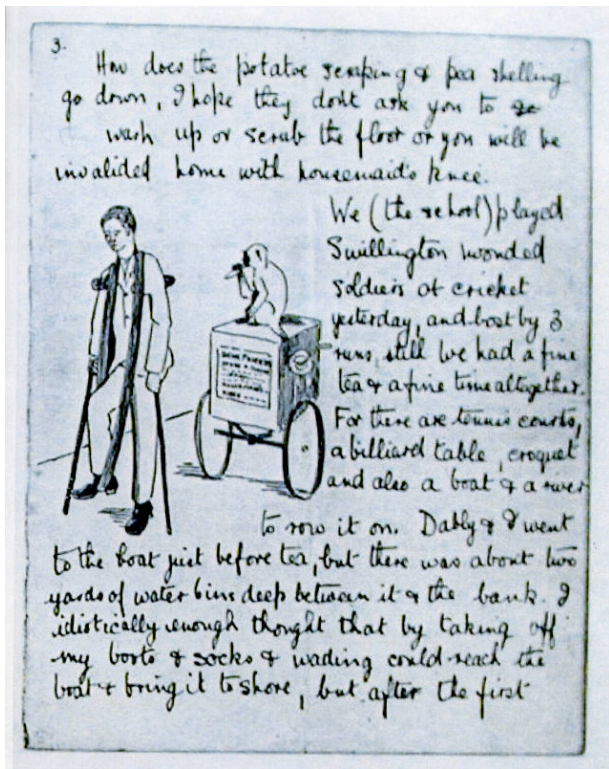 3.
How does the potatoe scraping & pea shelling
go down, I hope they dont ask you to
wash up or scrub the floor or you will be
invalided home with housemaid's knee.
We (the school) played
Swillington wonded
soldiers at cricket
yesterday, and lost by 3
runs, still we had a fine
tea & a fine time altogether.
For there are tennis courts,
a billiard table, croquet
and also a boat & a river
to row it on. Dably & I went
to the boat just before tea, but there was about two
yards of water 6ins deep between it & the bank. I
idiotically enough thought that by taking off
my boots & socks & wading could reach the
boat & bring it to shore, but after the first